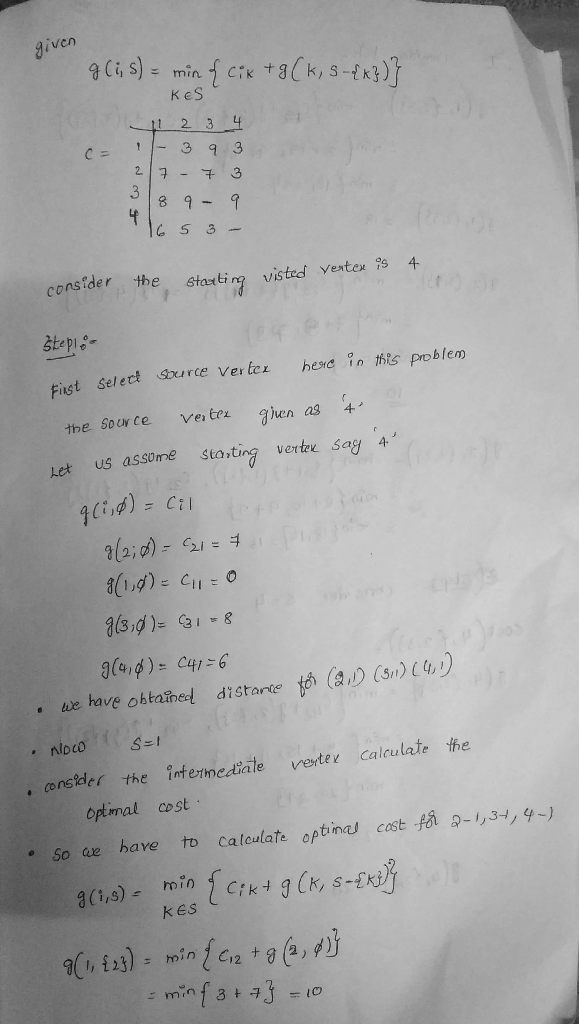 given
g(i,S) = min { Cik + g(k, S-{k})}
KES
1 2 3 4
C = 1 - 3 9 3
2 7 - 7 3
3 8 9 - 9
4 6 5 3 -
consider the starting visted vertex is 4
Step1:-
First select source vertex here in this problem
the source vertex given as '4'
Let us assume starting vertex say '4'
g(i,ø) = Ci1
g(2,ø) = C21 = 7
g(1,ø) = C11 = 0
g(3,ø) = C31 = 8
g(4,ø) = C41 = 6
• we have obtained distance for (2,1) (3,1) (4,1)
• Now S=1
• consider the intermediate vertex calculate the
optimal cost.
• So we have to calculate optimal cost for 2-1, 3-1, 4-1
g(i,s) = min { Cik + g(k, s-{k})}
KES
g(1,{2}) = min { C12 + g(2, ø)}
= min { 3 + 7} = 10